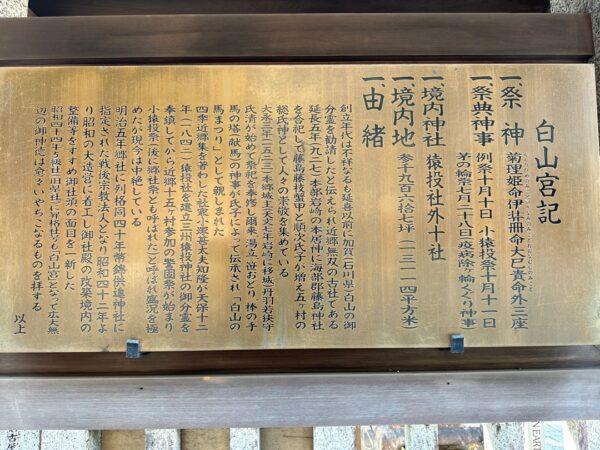 白山宮記
一、祭神 菊理姫命 伊弉冊命 大己貴命 外三座
一、祭典神事 例祭十月十日 小猿投祭十月十一日
茅の輪祭七月二十八日(疫病除ケ輪くぐり神事)
一、境内神社 猿投社外十社
一、境内地 参千九百六拾七坪(一三一一四平方米)
一、由緒
創立年代は不祥なるも延喜以前に加賀(石川県)白山の御
分霊を勧請したと伝えられ近郷無双の古社である
延長五年(九二七)本郡岩崎の本居神に海部郡藤島神社
を合祀して藤島藤枝蟹甲と順次氏子が増え五ヶ村の
総氏神として人々の崇敬を集めている
大永三年(一五二三)本郷城主(天文七年岩崎に移城)丹羽若狭守
氏清が始めて祭祀を奉修し爾来、湯立、笹おどり、棒の手
馬の塔(献馬)の神事が氏子によって伝承され「白山の
馬まつり」として親しまれた
四季近郷集を著わした社家小塚甚太夫知隆が天保十二
年(一八四一)猿投社を建立三州猿投神社の御分霊を
奉鎮してから近郷十五ヶ村参加の警固祭が始まり
小猿投祭(後に郷社祭とも呼ばれた)と呼ばれ盛況を極
めたが現今は中絶している
明治五年郷社に列格同四十年幣錦供進神社に
指定された戦後宗教法人となり昭和四十二年よ
り昭和の大造営に着工し御社殿の改築境内の
整備等をすすめ御社頭の面目を一新した
昭和四十四年五級社(旧県社)に昇格社号も「白山宮」となって広大無
辺の御神徳は愈々いやちこなるものを拝する
以上